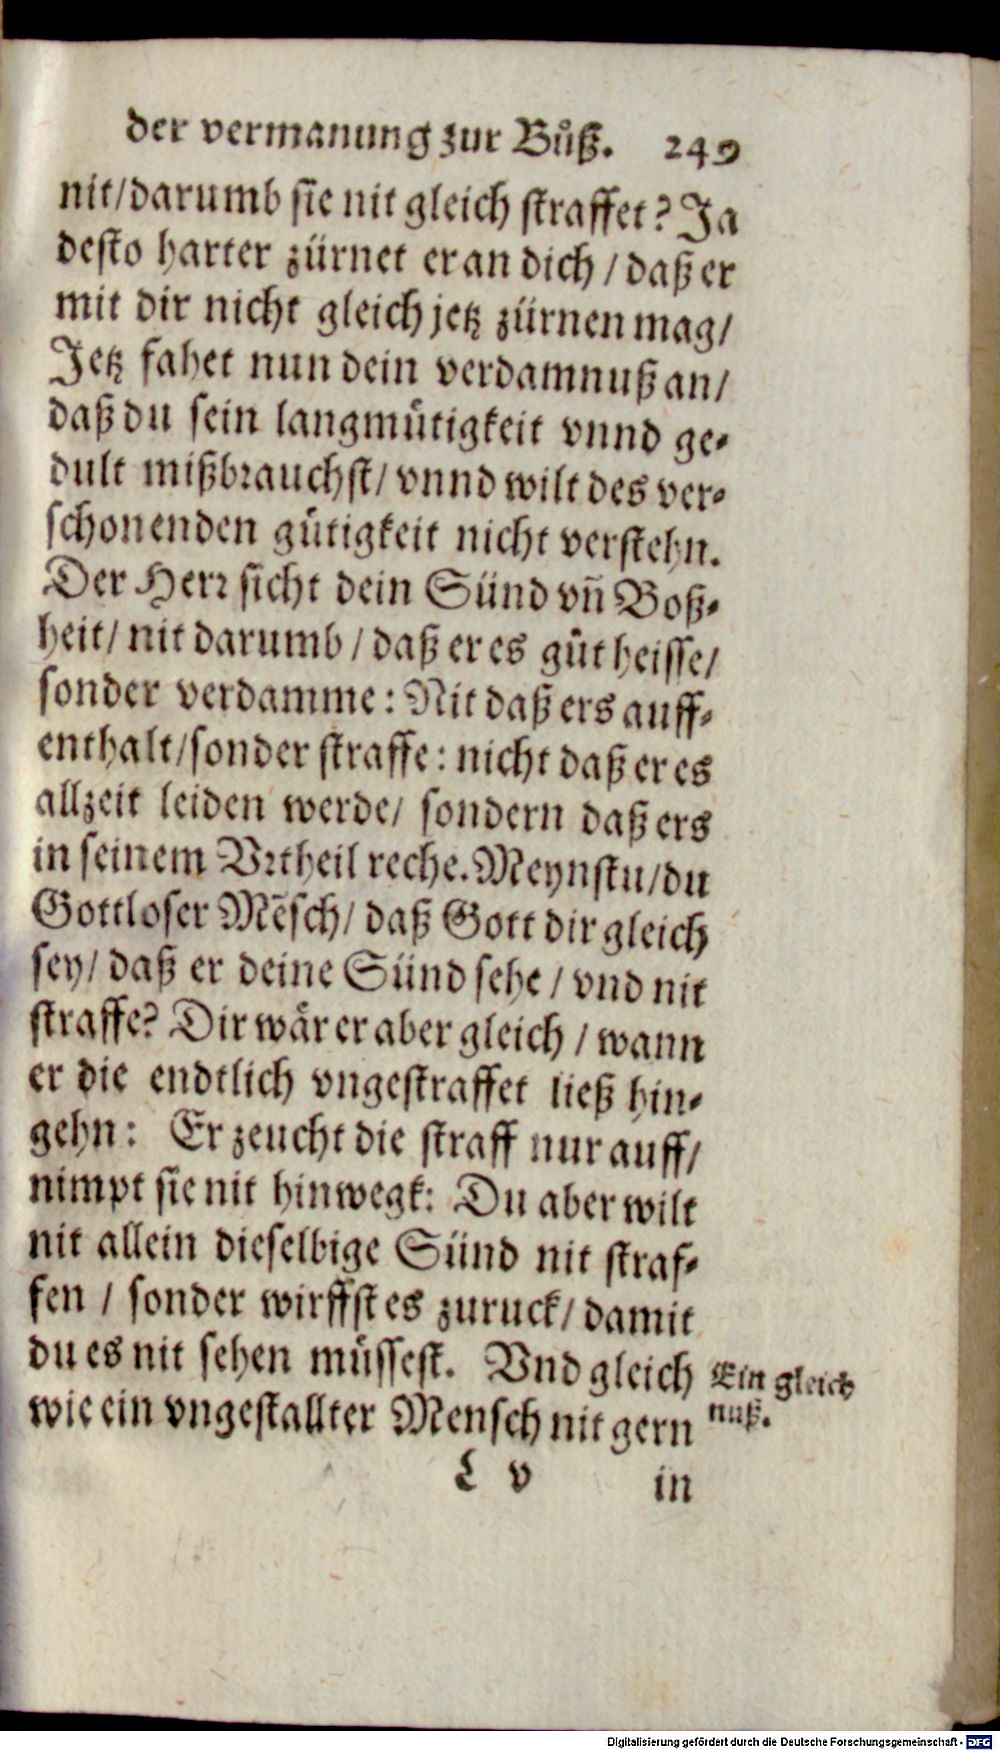 der vermanung zur Bůß. 249
nit/darumb sie nit gleich straffet? Ja
desto harter zürnet er an dich / daß er
mit dir nicht gleich jetz zürnen mag/
Jetz fahet nun dein verdamnuß an/
daß du sein langmůtigkeit vnnd ge-
dult mißbrauchst/ vnnd wilt des ver-
schonenden gůtigkeit nicht verstehn.
Der Herr sicht dein Sünd vn̄ Boß-
heit/ nit darumb / daß er es gůt heisse/
sonder verdamme: Nit daß ers auff-
enthalt/sonder straffe: nicht daß er es
allzeit leiden werde/ sondern daß ers
in seinem Vrtheil reche. Meynstu/du
Gottloser Mēsch/ daß Gott dir gleich
sey/ daß er deine Sünd sehe / vnd nit
straffe? Dir wår er aber gleich / wann
er die endtlich vngestraffet ließ hin-
gehn: Er zeucht die straff nur auff/
nimpt sie nit hinwegk: Du aber wilt
nit allein dieselbige Sünd nit straf-
fen / sonder wirffst es zuruck/ damit
du es nit sehen müssest. Vnd gleich
wie ein vngestallter Mensch nit gern
Ein gleich
nuß.
L v in
Digitalisierung gefördert durch die Deutsche Forschungsgemeinschaft - DFG